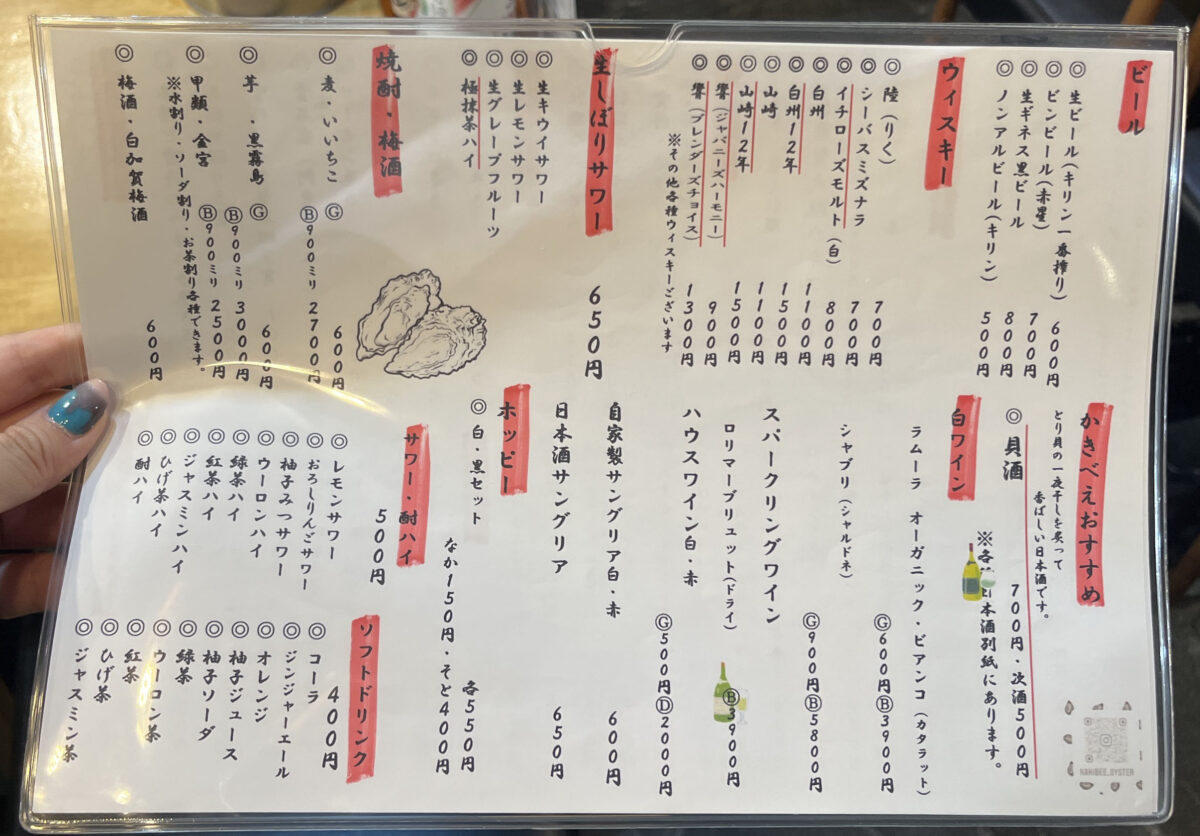 ビール
◎ 生ビール(キリン一番搾り) 600円
◎ ビンビール(赤星) 700円
◎ 生ギネス黒ビール 800円
◎ ノンアルビール(キリン) 500円
ウィスキー
◎ 陸(りく) 700円
◎ シーバスミズナラ 700円
◎ イチローズモルト(白) 800円
◎ 白州 1100円
◎ 白州12年 1500円
◎ 山崎 1100円
◎ 山崎12年 1500円
◎ 響(ジャパニーズハーモニー) 900円
◎ 響(ブレンダーズチョイス) 1300円
※その他各種ウィスキーございます
生しぼりサワー 650円
◎ 生キウイサワー
◎ 生レモンサワー
◎ 生グレープフルーツ
◎ 極抹茶ハイ
焼酎・梅酒
◎ 麦・いいちこ Ⓖ 600円
Ⓑ900ミリ 2700円
◎ 芋・黒霧島 Ⓖ 600円
Ⓑ900ミリ 3000円
◎ 甲類・金宮 Ⓑ900ミリ 2500円
※水割り・ソーダ割り・お茶割り各種できます。
◎ 梅酒・白加賀梅酒 600円
かきべえおすすめ
とり貝の一夜干しを炙って
香ばしい日本酒です。
◎ 貝酒 700円・次酒500円
※各 日本酒別紙にあります。
白ワイン
ラムーラ オーガニック・ビアンコ(カタラット)
Ⓖ600円Ⓑ3900円
シャブリ(シャルドネ)
Ⓖ900円Ⓑ5800円
スパークリングワイン
ロリマーブリュット(ドライ) Ⓑ3900円
ハウスワイン白・赤
Ⓖ500円Ⓓ2000円
自家製サングリア白・赤 600円
日本酒サングリア 650円
ホッピー
◎ 白・黒セット 各550円
なか150円・そと400円
サワー・酎ハイ
500円
◎ レモンサワー
◎ おろしりんごサワー
◎ 柚子みつサワー
◎ ウーロンハイ
◎ 緑茶ハイ
◎ 紅茶ハイ
◎ ジャスミンハイ
◎ ひげ茶ハイ
◎ 酎ハイ
ソフトドリンク
400円
◎ コーラ
◎ ジンジャーエール
◎ オレンジ
◎ 柚子ジュース
◎ 柚子ソーダ
◎ 緑茶
◎ ウーロン茶
◎ 紅茶
◎ ひげ茶
◎ ジャスミン茶